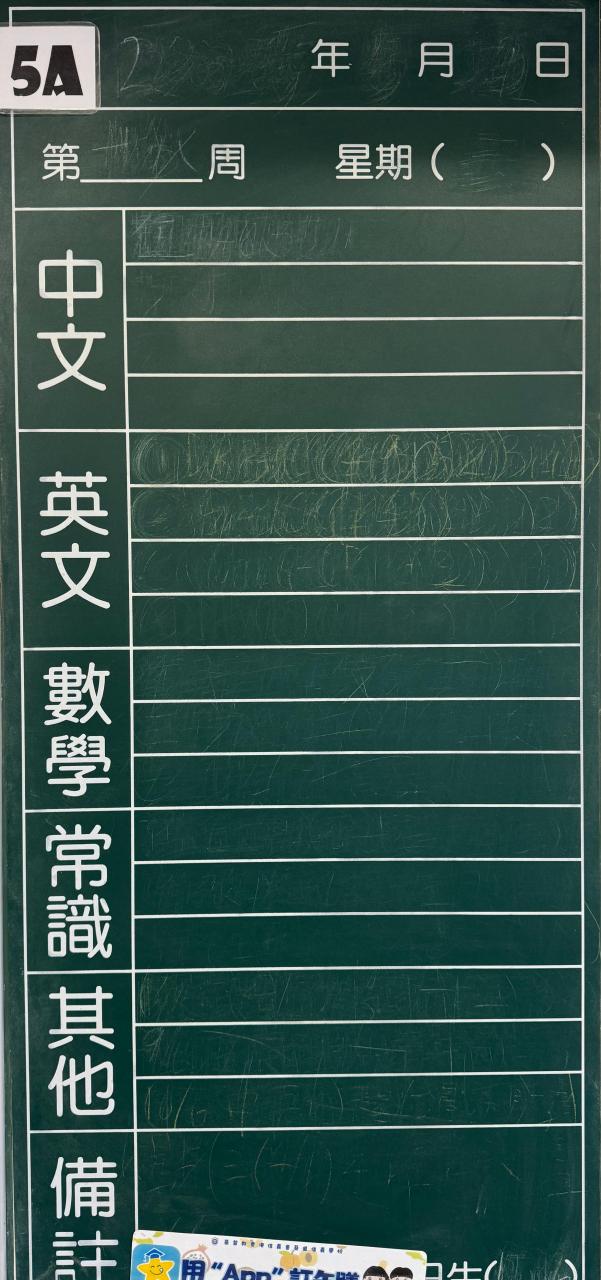 5A
年 月 日
第______周 星期( )
中文
英文
數學
常識
其他
備註
用“App”訂午膳
日生( )